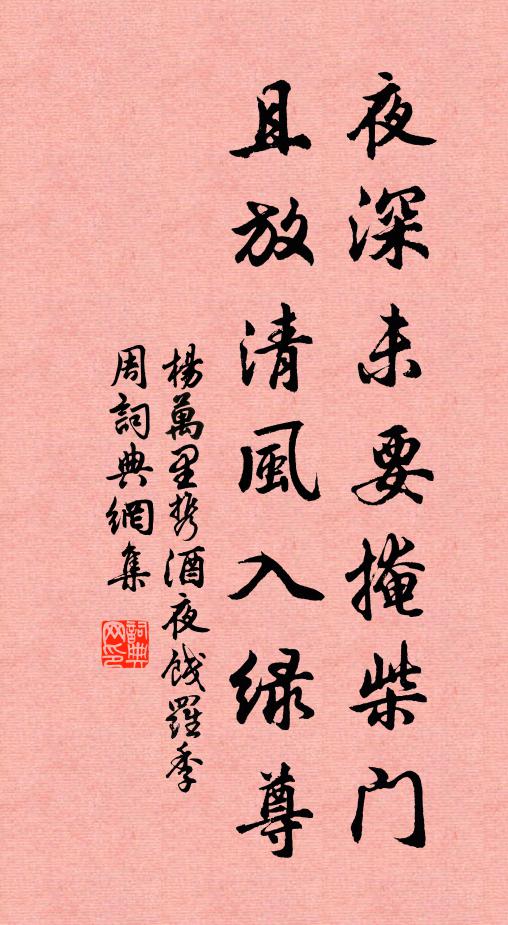 夜深未要掩柴門
且放清風入綠尊
楊萬里携酒夜餞羅季
周詞典網集
詞典網印